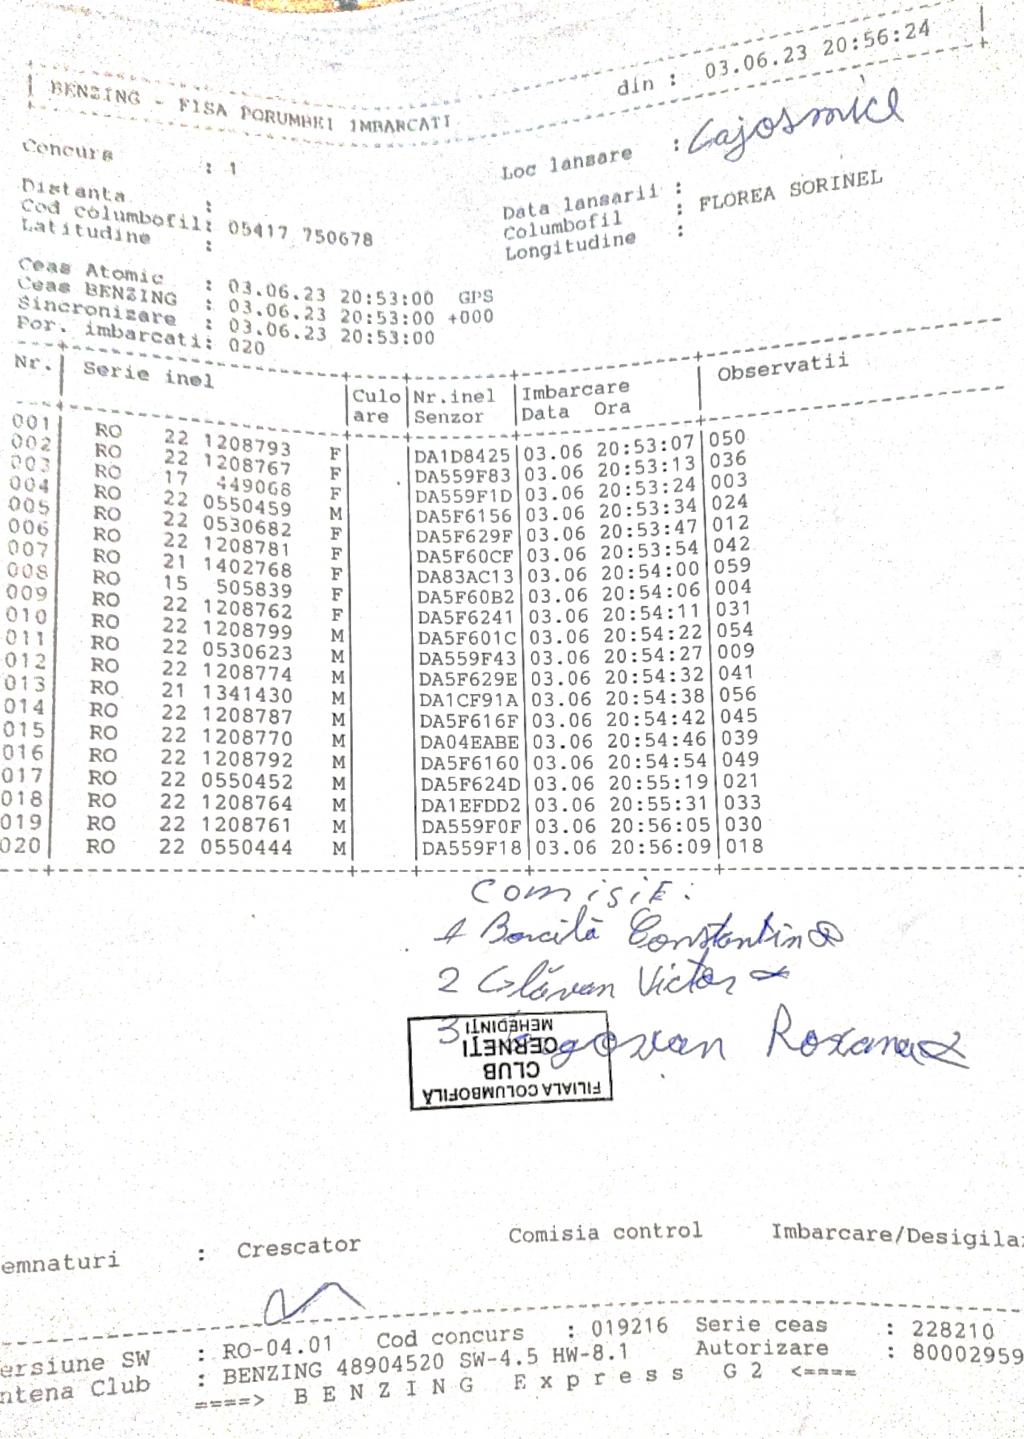 din : 03.06.23 20:56:24
BENZING - FISA PORUMBEI IMBARCATI
Concurs : 1 Loc lansare : Lajosmice
Distanta : Data lansarii :
Cod columbofil: 05417 750678 Columbofil : FLOREA SORINEL
Latitudine : Longitudine :
Ceas Atomic : 03.06.23 20:53:00 GPS
Ceas BENZING : 03.06.23 20:53:00 +000
Sincronizare : 03.06.23 20:53:00
Por. imbarcati: 020
Nr. Serie inel Culo Nr.inel Imbarcare Observatii
are Senzor Data Ora
001 RO 22 1208793 F DA1D8425 03.06 20:53:07 050
002 RO 22 1208767 F DA559F83 03.06 20:53:13 036
003 RO 17 449068 F DA559F1D 03.06 20:53:24 003
004 RO 22 0550459 M DA5F6156 03.06 20:53:34 024
005 RO 22 0530682 F DA5F629F 03.06 20:53:47 012
006 RO 22 1208781 F DA5F60CF 03.06 20:53:54 042
007 RO 21 1402768 F DA83AC13 03.06 20:54:00 059
008 RO 15 505839 F DA5F60B2 03.06 20:54:06 004
009 RO 22 1208762 F DA5F6241 03.06 20:54:11 031
010 RO 22 1208799 M DA5F601C 03.06 20:54:22 054
011 RO 22 0530623 M DA559F43 03.06 20:54:27 009
012 RO 22 1208774 M DA5F629E 03.06 20:54:32 041
013 RO 21 1341430 M DA1CF91A 03.06 20:54:38 056
014 RO 22 1208787 M DA5F616F 03.06 20:54:42 045
015 RO 22 1208770 M DA04EABE 03.06 20:54:46 039
016 RO 22 1208792 M DA5F6160 03.06 20:54:54 049
017 RO 22 0550452 M DA5F624D 03.06 20:55:19 021
018 RO 22 1208764 M DA1EFDD2 03.06 20:55:31 033
019 RO 22 1208761 M DA559F0F 03.06 20:56:05 030
020 RO 22 0550444 M DA559F18 03.06 20:56:09 018
Comisie:
1 Borcilă Constantin
2 Glăvan Victor
3 Roxana
FILIALA COLUMBOFILĂ
CLUB
CERNEȚI
MEHEDINȚI
emnaturi : Crescator Comisia control Imbarcare/Desigila
ersiune SW : RO-04.01 Cod concurs : 019216 Serie ceas : 228210
ntena Club : BENZING 48904520 SW-4.5 HW-8.1 Autorizare : 80002959
====> B E N Z I N G E x p r e s s G 2 <====